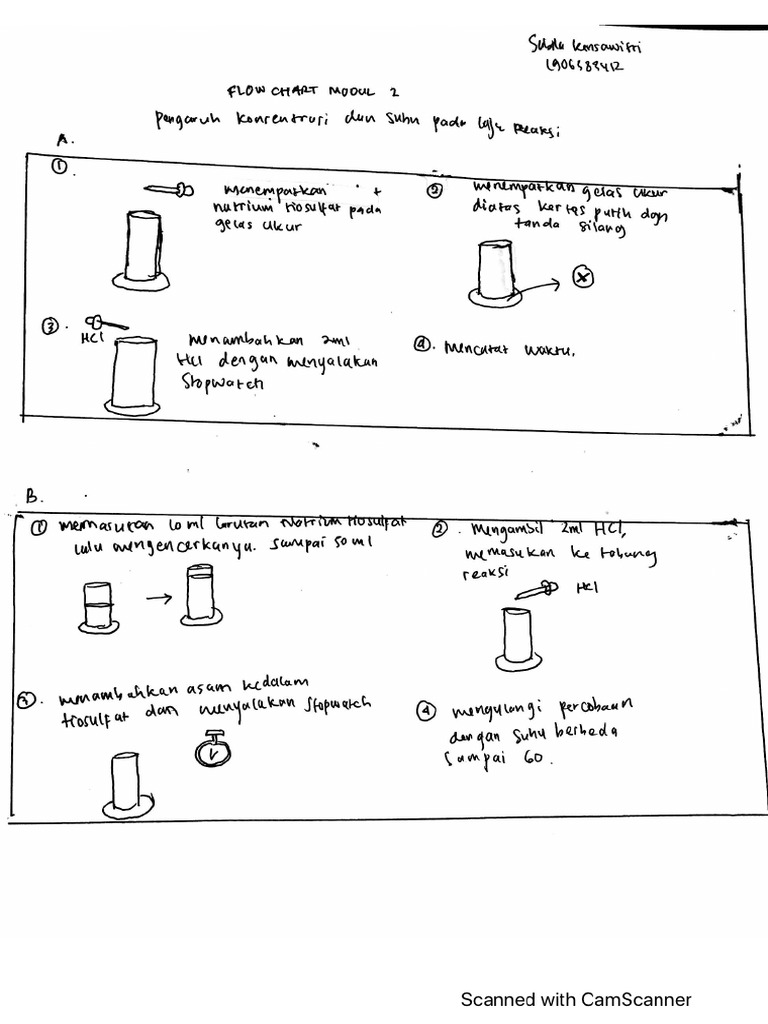 FLOW CHART MODUL 2
Pengaruh Konsentrasi dan Suhu pada laju Reaksi
A.
①
menempatkan
natrium tiosulfat pada
gelas ukur
② menempatkan gelas ukur
diatas kertas putih dgn
tanda silang
X
③.
HCl
menambahkan 2ml
HCl dengan menyalakan
Stopwatch
④. Mencatat waktu.
B.
① memasukan 10 ml larutan Natrium tiosulfat
lalu mengencerkanya. sampai 50 ml
②. Mengambil 2ml HCl,
memasukan ke tabung
reaksi
HCl
③. menambahkan asam kedalam
tiosulfat dan menyalakan Stopwatch
④ mengulangi percobaan
dengan suhu berbeda
sampai 60.
Scanned with CamScanner